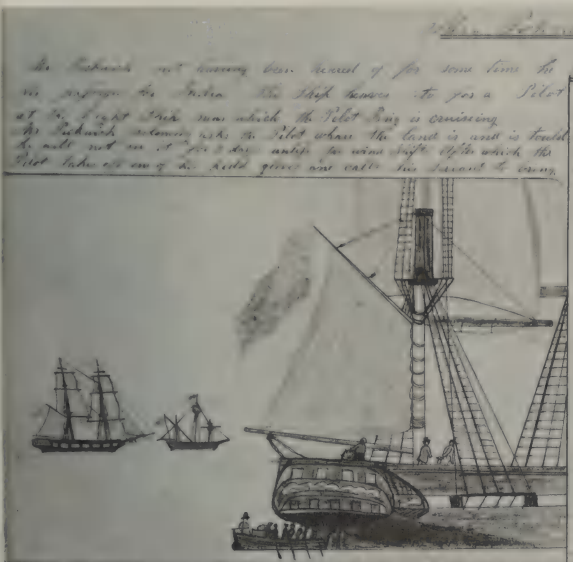 Mr Pickwick not having been heard of for some time he
on passage for India the Ship heaves to for a Pilot
at the Light Ship near which the Pilot Brig is cruising
Mr Pickwick asks the Pilot where the land is and is tould
he will not see it for 3 days unless the wind shifts after which the
Pilot takes off one of his kid gloves and calls his servant to bring